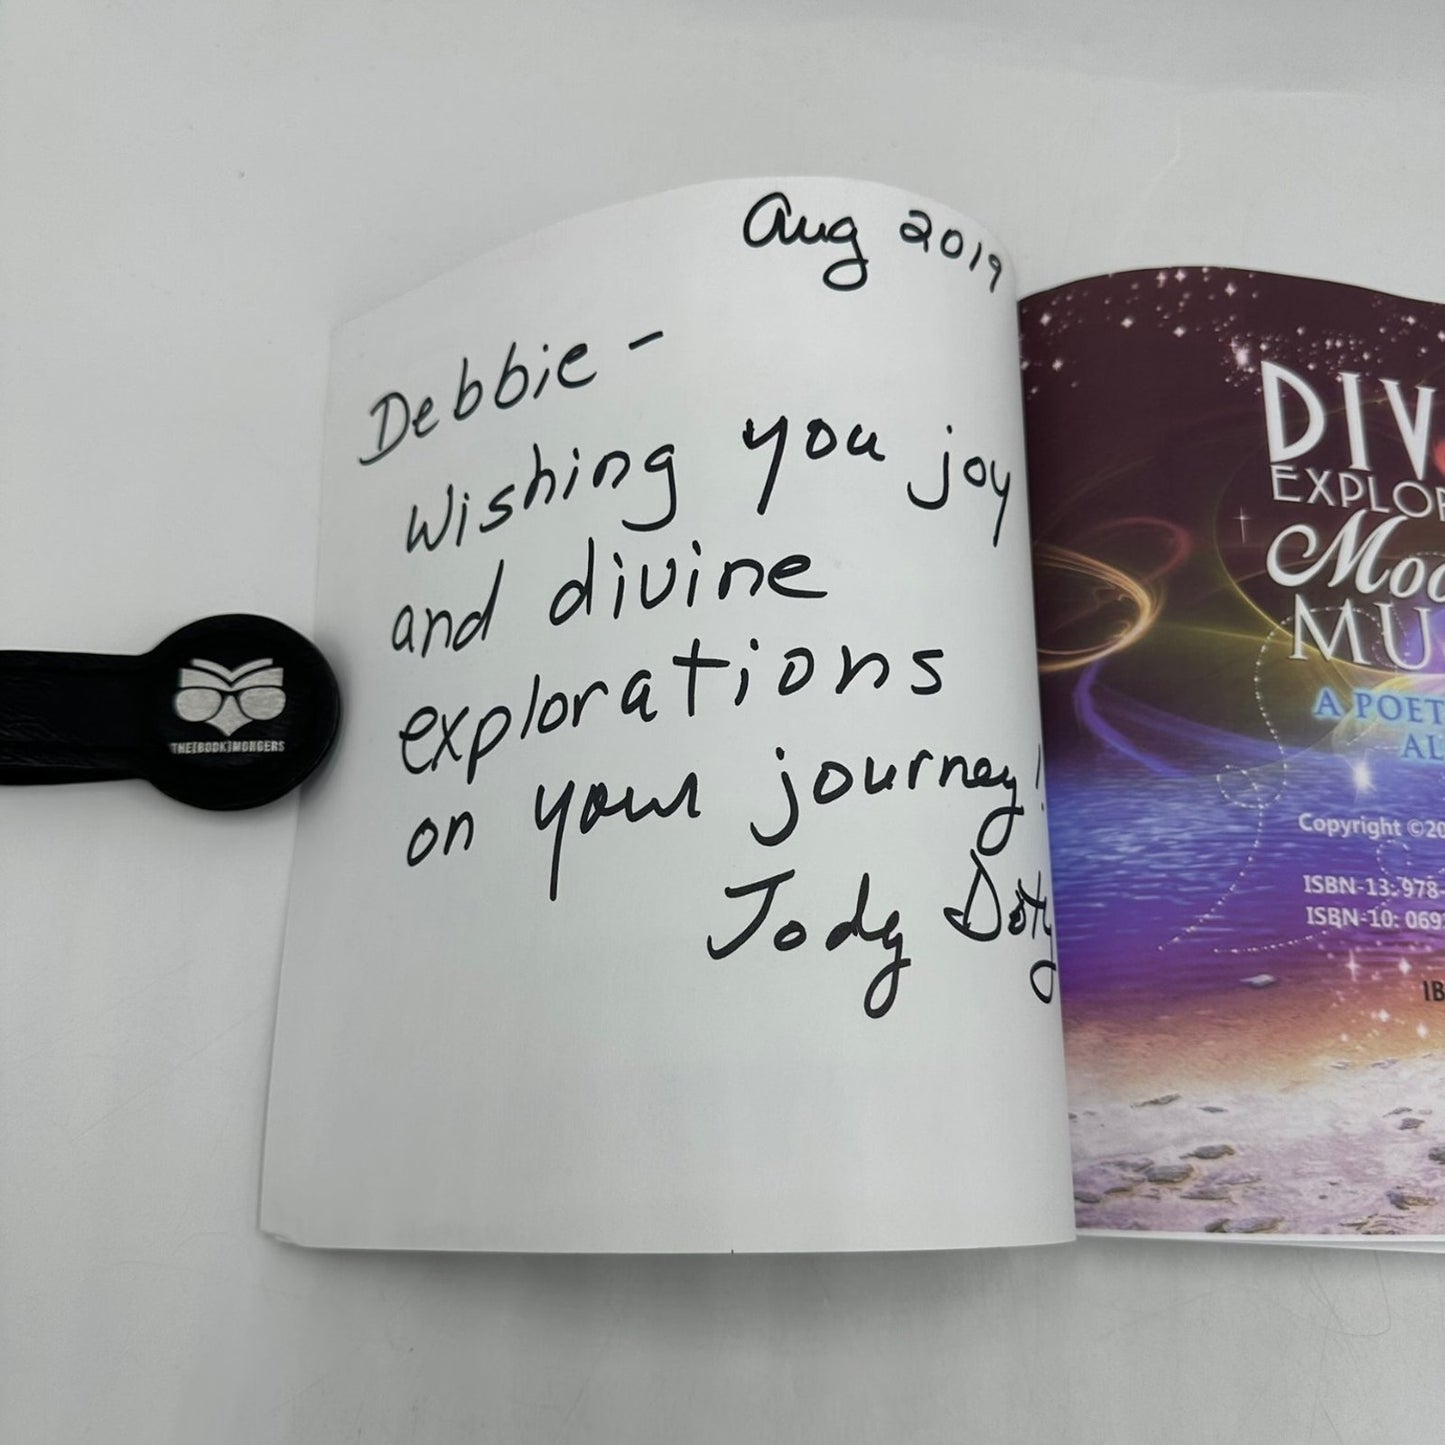 Aug 2019
Debbie -
Wishing you joy
and divine
explorations
on your journey!
Jody Doty
THE[BOOK]MONGERS
DIV
EXPLOR
Moo
MU
A POET
AL
Copyright ©20
ISBN-13: 978-
ISBN-10: 069
IB